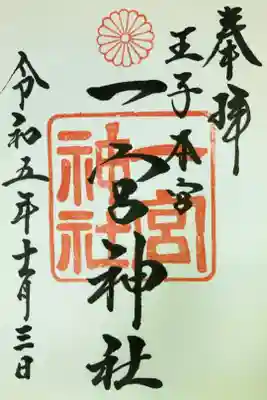 奉拝
王子本宮
一宮神社
令和五年十一月三日
一宮神社